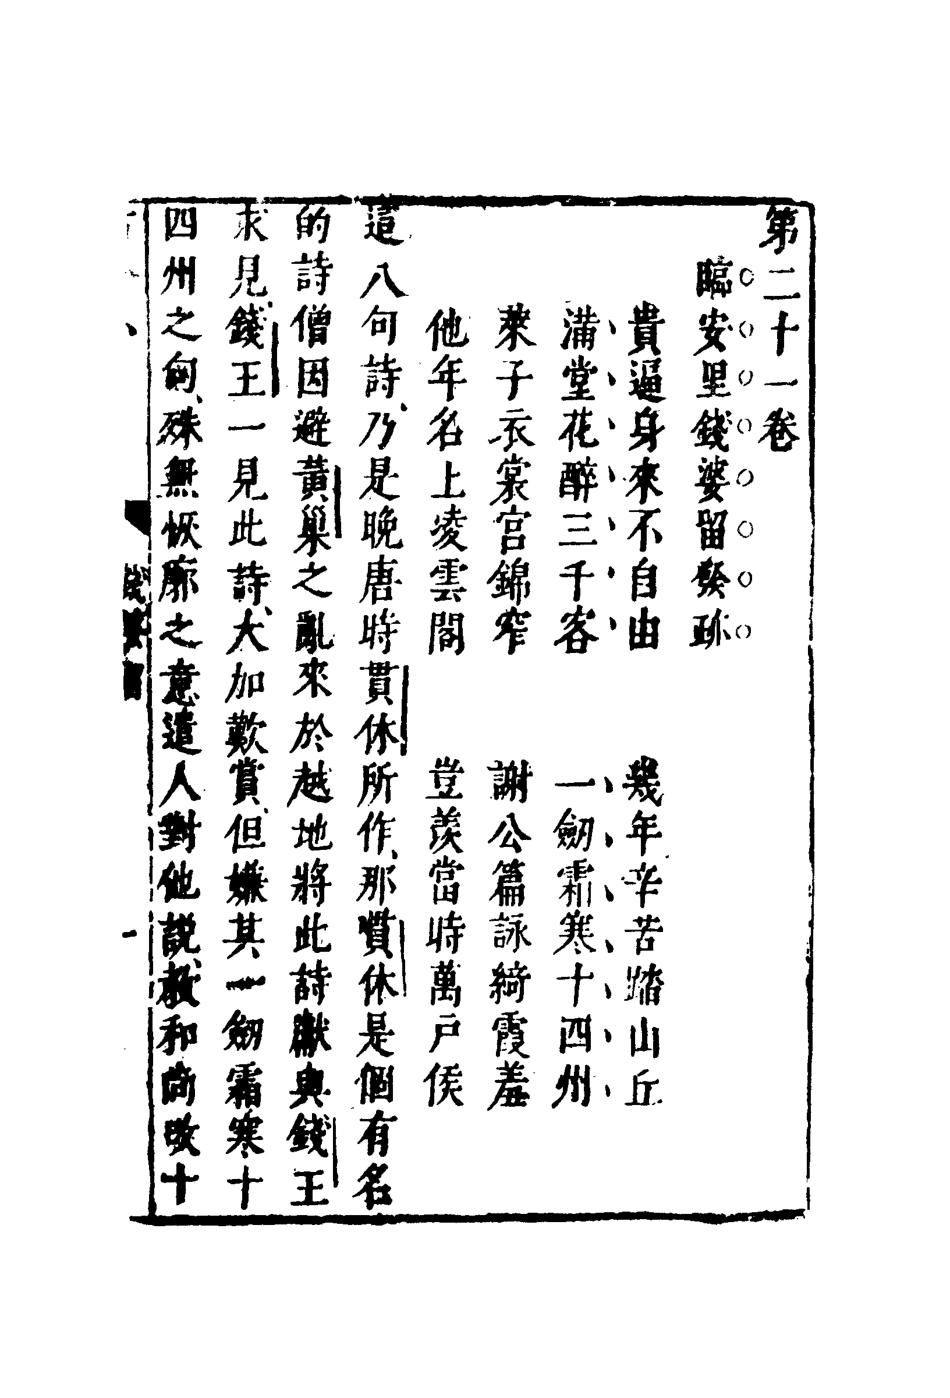 第二十一卷
臨安里錢婆留發跡
貴逼身來不自由　幾年辛苦踏山丘
滿堂花醉三千客　一劒霜寒十四州
萊子衣裳宮錦窄　謝公篇詠綺霞羞
他年名上凌雲閣　豈羨當時萬戶侯
這八句詩、乃是晚唐時貫休所作、那貫休是個有名
的詩僧因避黃巢之亂來於越地將此詩獻與錢王
求見、錢王一見此詩、大加歎賞、但嫌其一劒霜寒十
四州之句、殊無恢廓之意遣人對他說、教和尚改十